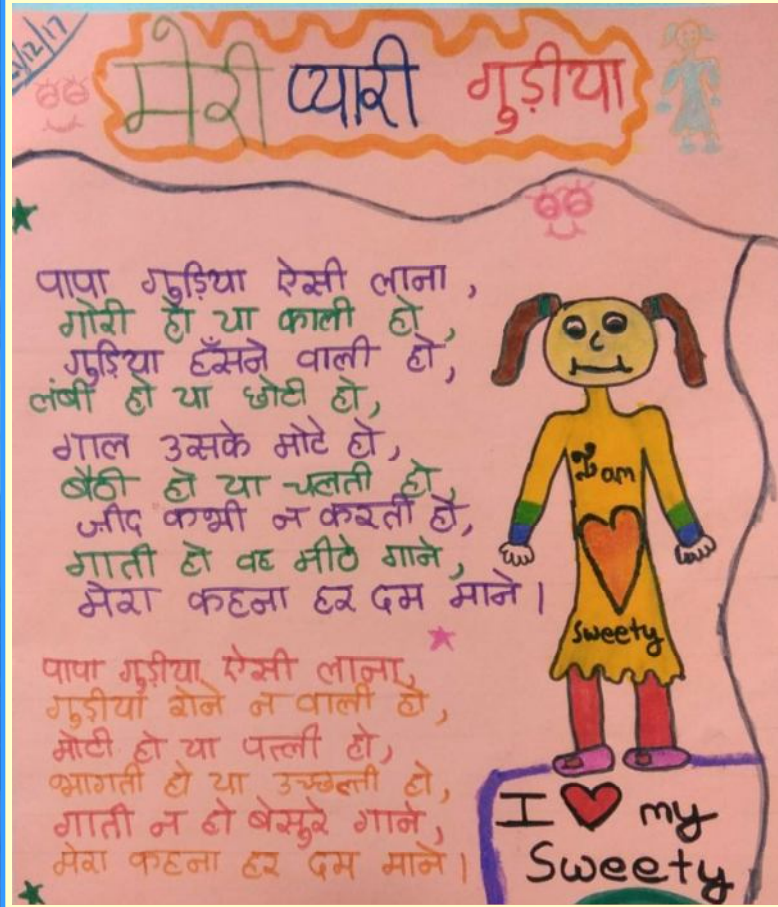 /12/17
मेरी प्यारी गुड़ीया
पापा गुड़िया ऐसी लाना,
गोरी हो या काली हो,
गुड़िया हँसने वाली हो,
लंबी हो या छोटी हो,
गाल उसके मोटे हो,
बैठी हो या चलती हो,
ज़ीद कभी न करती हो,
गाती हो वह मीठे गाने,
मेरा कहना हर दम माने।
पापा गुड़ीया ऐसी लाना,
गुड़ीया रोने न वाली हो,
मोटी हो या पत्ली हो,
भागती हो या उच्छल्ती हो,
गाती न हो बेसुरे गाने,
मेरा कहना हर दम माने।
I am
Sweety
I ❤ my
Sweety